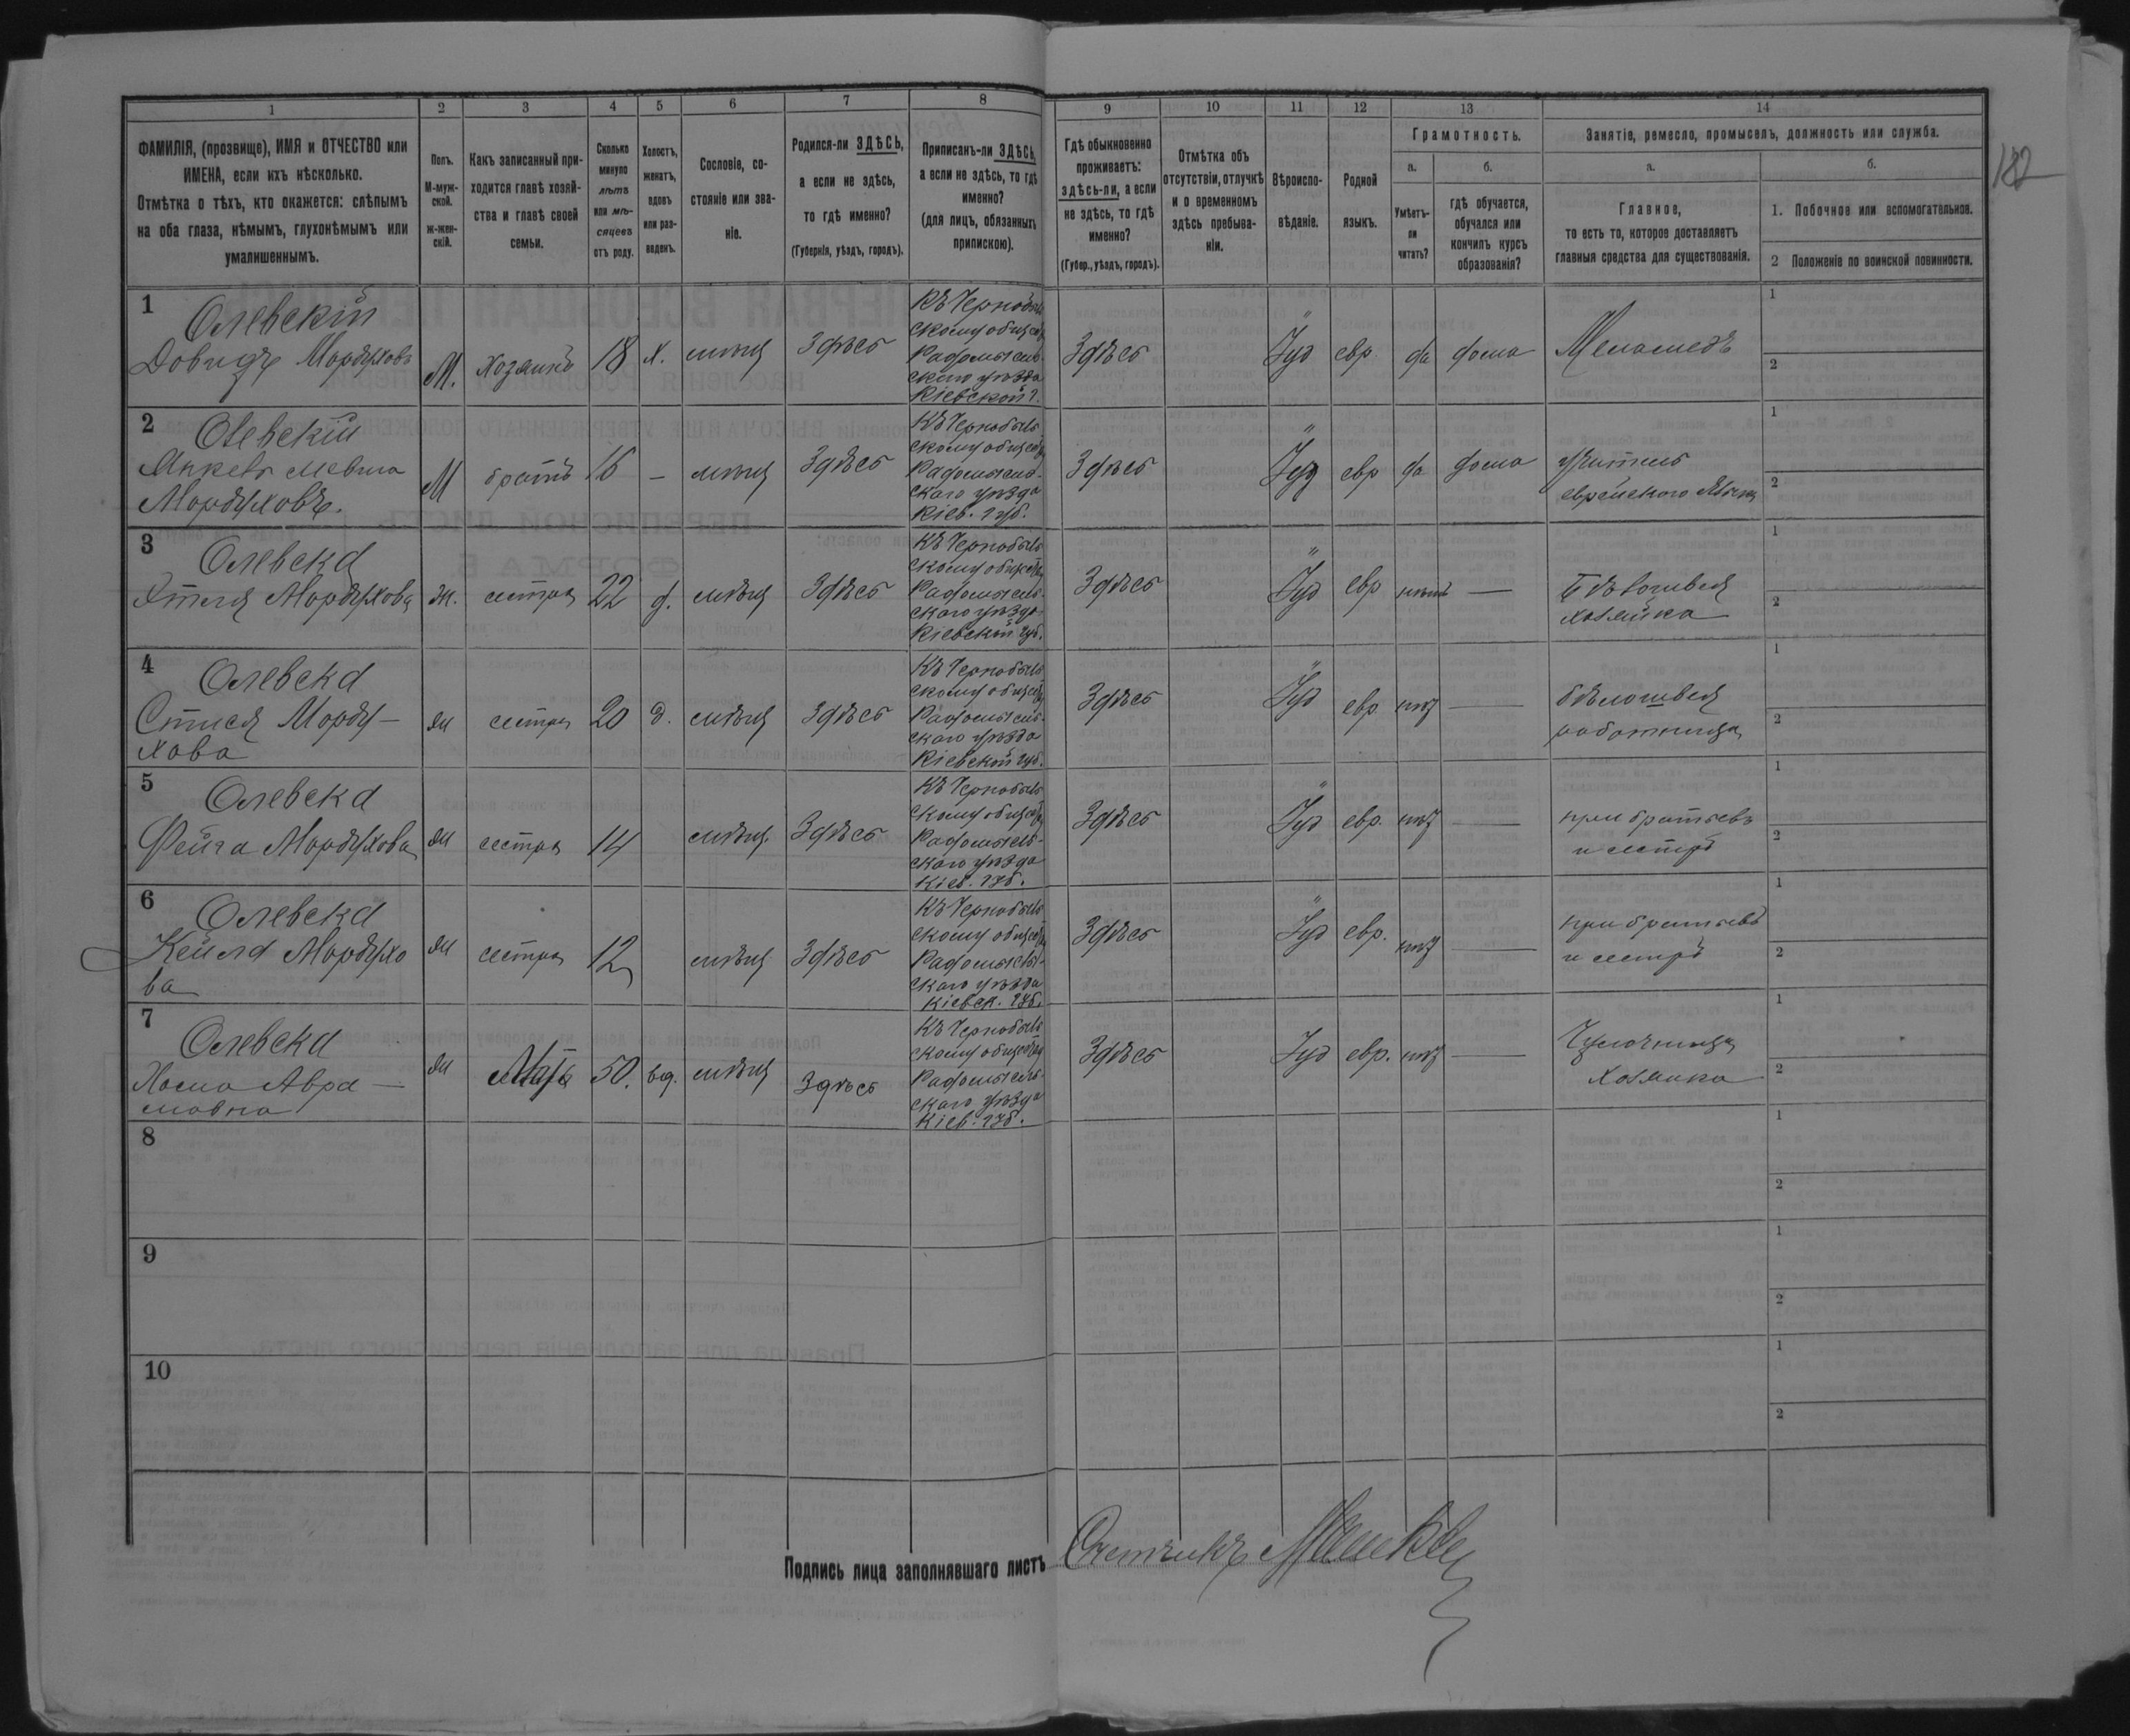 1 2 3 4 5 6 7 8 9 10 11 12 13 14
ФАМИЛІЯ, (прозвище), ИМЯ и ОТЧЕСТВО или
ИМЕНА, если ихъ нѣсколько.
Отмѣтка о тѣхъ, кто окажется: слѣпымъ
на оба глаза, нѣмымъ, глухонѣмымъ или
умалишеннымъ.
Полъ.
М-муж-
ской.
ж-жен-
скій.
Какъ записанный при-
ходится главѣ хозяй-
ства и главѣ своей
семьи.
Сколько
минуло
лѣтъ
или мѣ-
сяцевъ
отъ роду.
Холостъ,
женатъ,
вдовъ
или раз-
веденъ.
Сословіе, со-
стояніе или зва-
ніе.
Родился-ли ЗДѢСЬ,
а если не здѣсь,
то гдѣ именно?
(Губернія, уѣздъ, городъ).
Приписанъ-ли ЗДѢСЬ,
а если не здѣсь, то гдѣ
именно?
(для лицъ, обязанныхъ
припискою).
Гдѣ обыкновенно
проживаетъ:
здѣсь-ли, а если
не здѣсь, то гдѣ
именно?
(Губер., уѣздъ, городъ).
Отмѣтка объ
отсутствіи, отлучкѣ
и о временномъ
здѣсь пребыва-
ніи.
Вѣроиспо-
вѣданіе.
Родной
языкъ.
Грамотность.
а.
Умѣетъ-
ли
читать?
б.
гдѣ обучается,
обучался или
кончилъ курсъ
образованія?
Занятіе, ремесло, промыселъ, должность или служба.
а.
Главное,
то есть то, которое доставляетъ
главныя средства для существованія.
б.
1. Побочное или вспомогательное.
2 Положеніе по воинской повинности.
182
1
Олевскій
Довидъ Мордуховъ
М. Хозяинъ 18 х. мѣщ Здѣсь
Къ Чернобыль
скому общест
Радомысль-
скаго уѣзда
Кіевской г.
Здѣсь Іуд евр. да дома Меламедъ
1
2
2
Олевскій
Янкель
Мордуховъ.
М братъ 16 — мѣщ Здѣсь
Къ Чернобыль
скому общест
Радомысль-
скаго уѣзда
Кіев. губ.
Здѣсь Іуд евр да дома учитель
еврейскаго языка
1
2
3
Олевска
Мордухова
ж. сестра 22 д. мѣщ Здѣсь
Къ Чернобыль
скому общест
Радомысль-
скаго уѣзда
Кіевской губ.
Здѣсь Іуд евр нѣтъ — Бѣлошвея
хозяйка
1
2
4
Олевска
СтисяМорду-
хова
ж сестра 20 д. мѣщ Здѣсь
Къ Чернобыль
скому общест
Радомысль-
скаго уѣзда
Кіевской губ.
Здѣсь Іуд евр нѣт — бѣлошвея
работница
1
2
5
Олевска
Фейга Мордухова
ж сестра 14 мѣщ. Здѣсь
Къ Чернобыль
скому общест
Радомысль-
скаго уѣзда
Кіев. губ.
Здѣсь Іуд евр. нѣт — при братьевъ
и сестрѣ
1
2
6
Олевска
Кейла Мордухо
ва
ж сестра 12 мѣщ Здѣсь
Къ Чернобыль
скому общест
Радомысль-
скаго уѣзда
Кіевск. губ.
Здѣсь Іуд евр. нѣт — при братьевъ
и сестрѣ
1
2
7
Олевска
Хасма Авра-
мовна
ж Мать 50. вд. мѣщ Здѣсь
Къ Чернобыль
скому общест
Радомысль-
скаго уѣзда
Кіев. губ.
Здѣсь Іуд евр. нѣт — Чулочница
хозяика
1
2
8
1
2
9
1
2
10
1
2
Подпись лица заполнявшаго листъ Счетчикъ